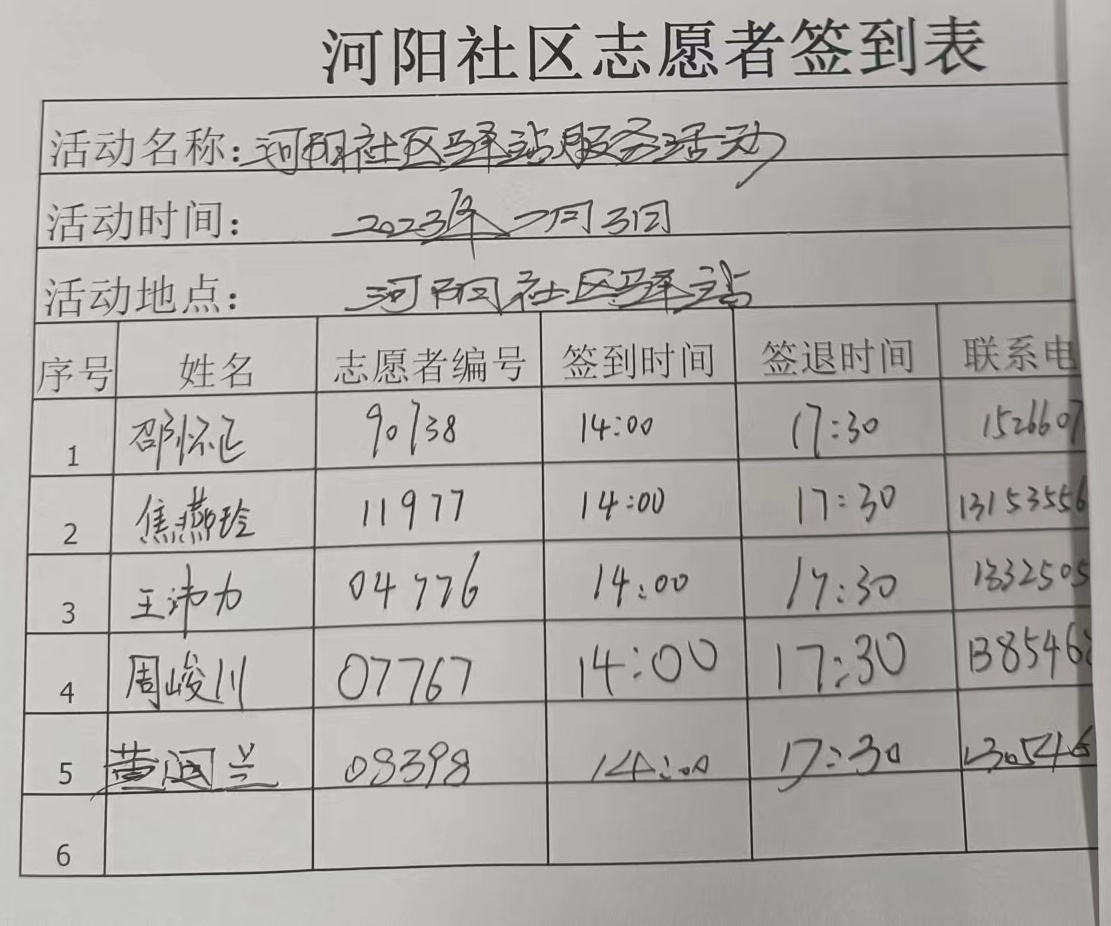 河阳社区志愿者签到表
活动名称:河阳社区驿站服务活动
活动时间: 2023年二月3日
活动地点: 河阳社区驿站
序号 姓名 志愿者编号 签到时间 签退时间 联系电
1 邵怀飞 90738 14:00 17:30 1526607
2 焦燕玲 11977 14:00 17:30 13153556
3 王沛力 04776 14:00 17:30 1332505
4 周峻川 07767 14:00 17:30 1385468
5 董润兰 08398 14:00 17:30 130546
6